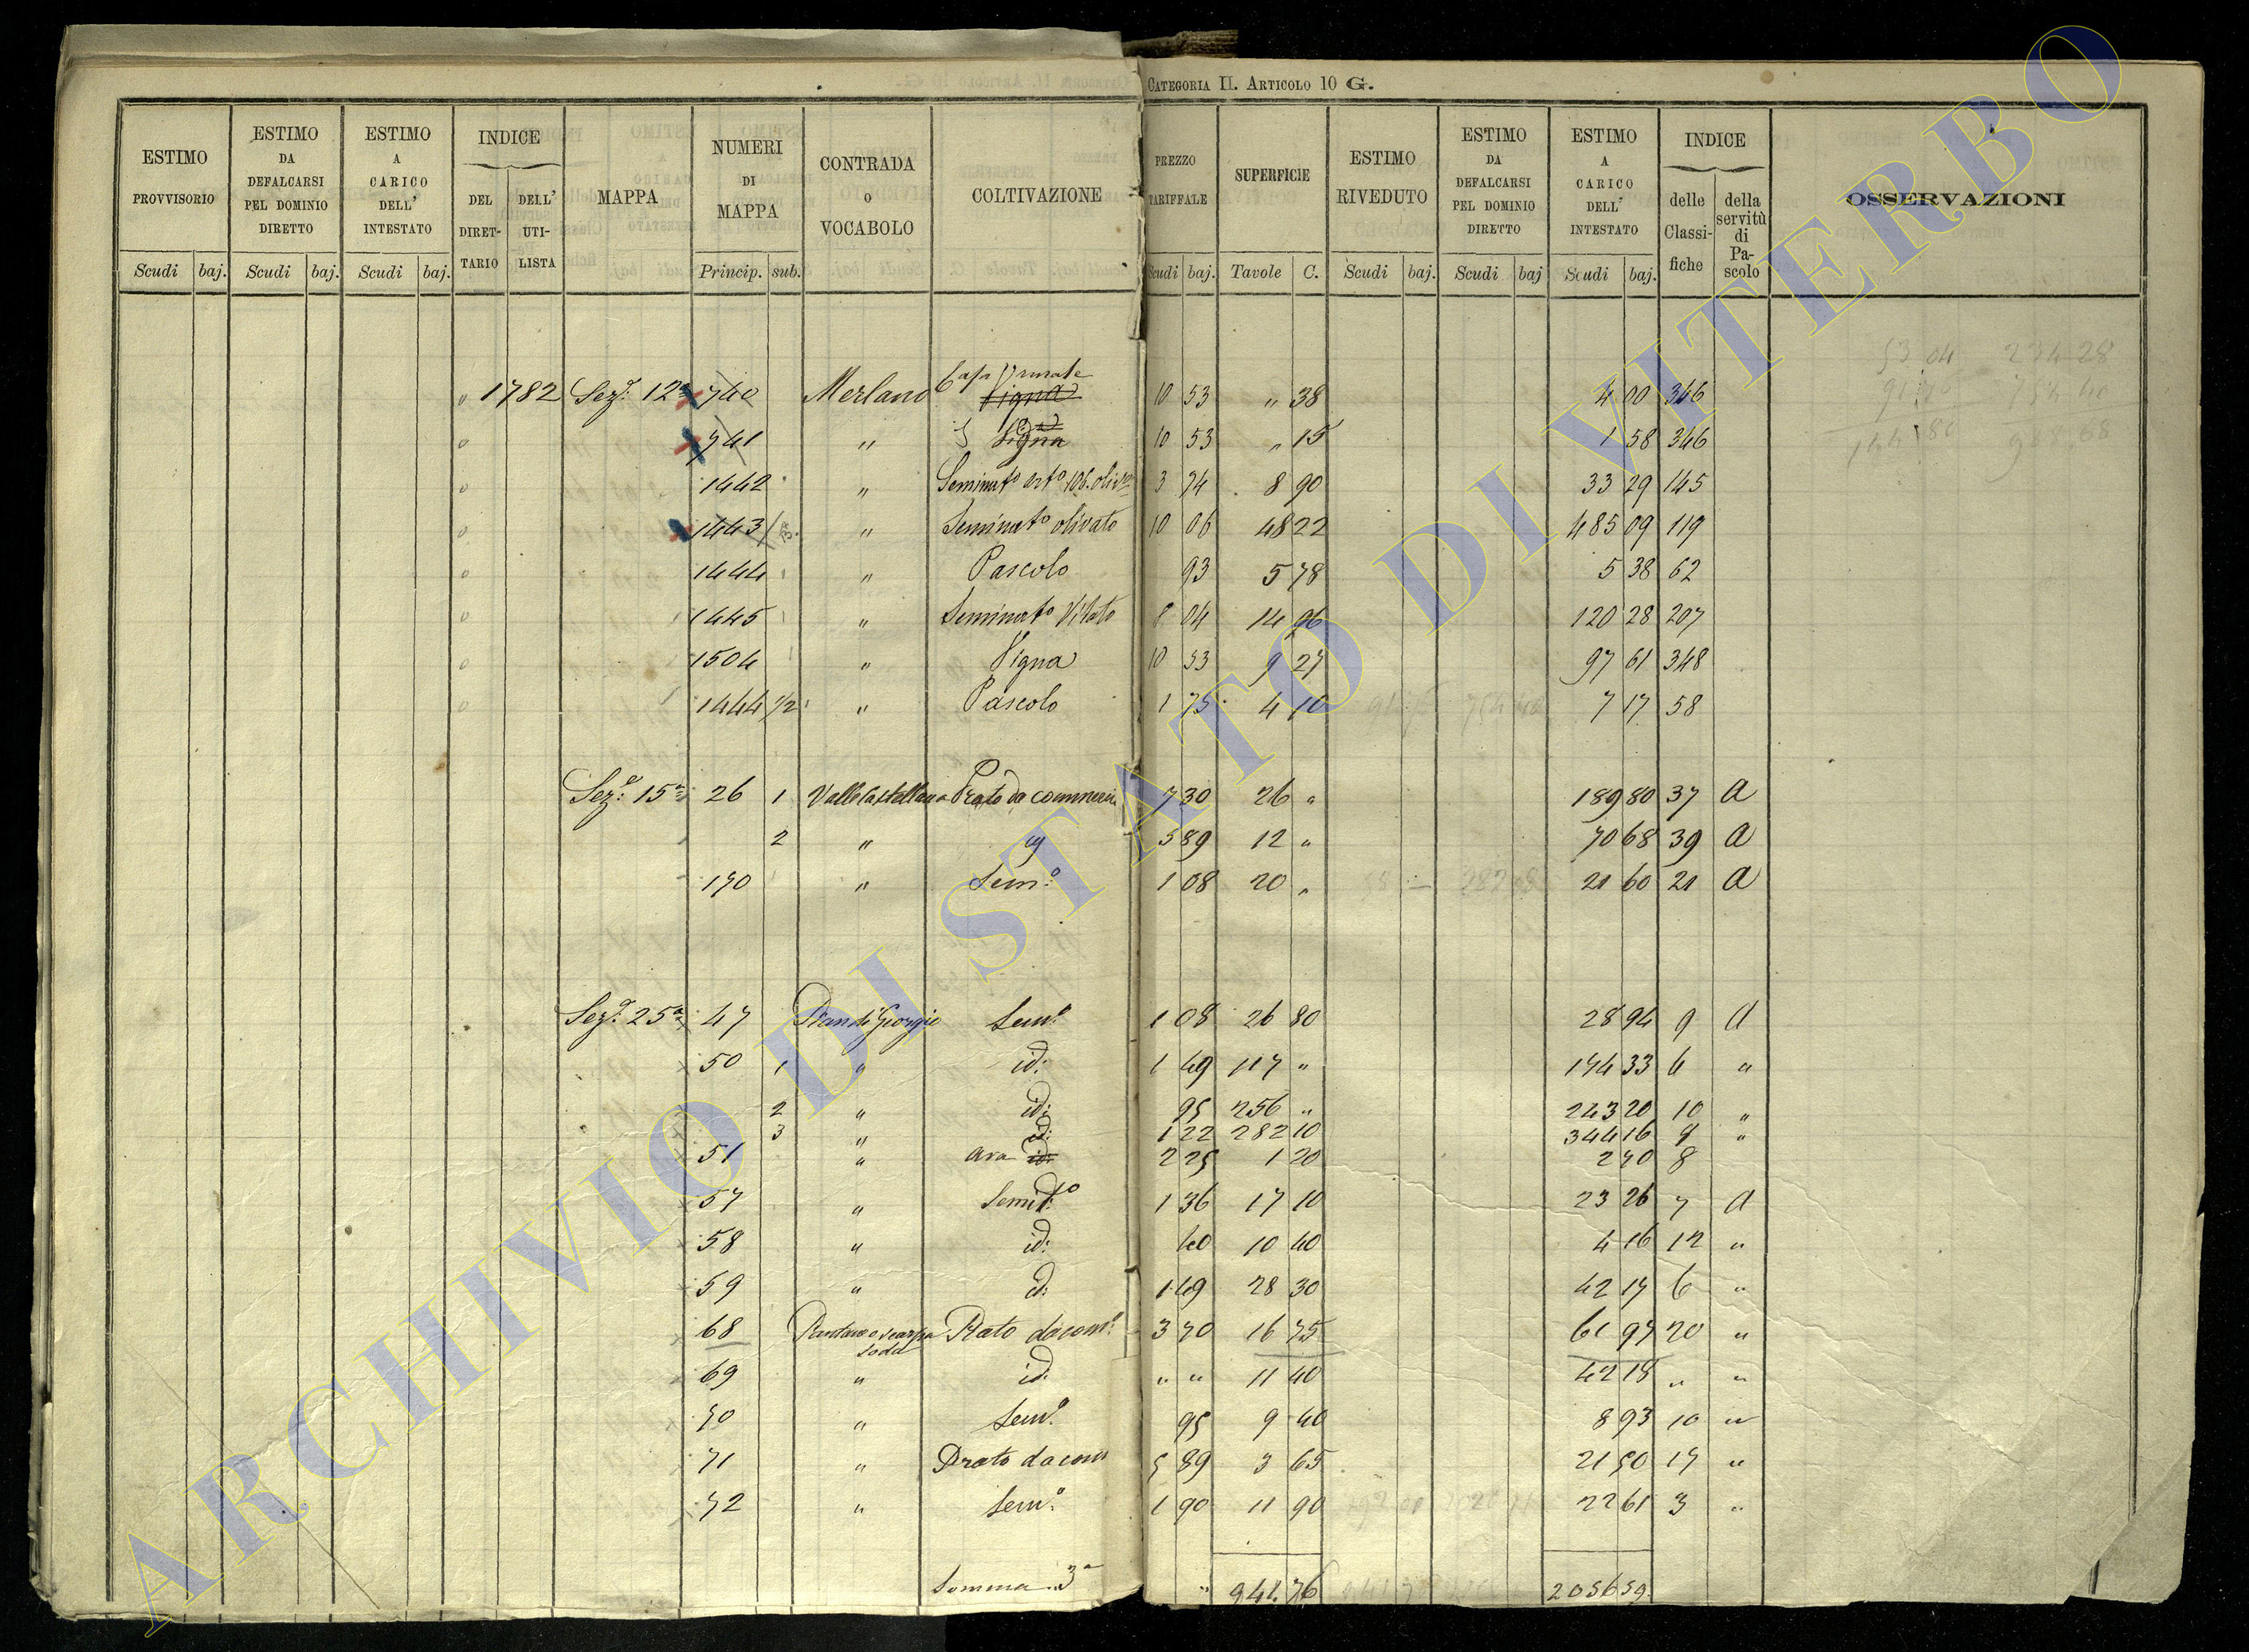 CATEGORIA II. ARTICOLO 10 G.
ESTIMO PROVVISORIO
ESTIMO DA DEFALCARSI PEL DOMINIO DIRETTO
ESTIMO A CARICO DELL' INTESTATO
INDICE
DEL DIRET- TARIO
DELL' UTI- LISTA
MAPPA
NUMERI DI MAPPA
CONTRADA o VOCABOLO
COLTIVAZIONE
PREZZO TARIFFALE
SUPERFICIE
ESTIMO RIVEDUTO
ESTIMO DA DEFALCARSI PEL DOMINIO DIRETTO
ESTIMO A CARICO DELL' INTESTATO
INDICE
delle Classi- fiche
della servitù di Pa- scolo
OSSERVAZIONI
Scudi baj. Scudi baj. Scudi baj. Princip. sub. Scudi baj. Tavole C. Scudi baj. Scudi baj Scudi baj.
" 1782 Sezᵉ 12ª 740 Merlano Casa Vigna 10 53 " 38 4 00 346
" 741 " Vigna 10 53 " 15 1 58 346
" 1442 " Seminatº ortº 3 74 8 90 33 29 145
" 1443 " Seminatº olivato 10 06 48 22 485 09 119
" 1444 " Pascolo 93 5 78 5 38 62
" 1445 " Seminatº Vitato 8 04 14 96 120 28 207
" 1504 " Vigna 10 53 9 27 97 61 348
" 1444 1/2 " Pascolo 1 75 4 10 7 17 58
Sezᵉ 15ª 26 1 Valle Castellana Prato da commercio 7 30 26 " 189 80 37 a
2 " " 5 89 12 " 70 68 39 a
170 " Semº 1 08 20 " 21 60 21 a
Sezᵉ 25ª 47 Pian di Giorgio Semº 1 08 26 80 28 94 9 a
50 1 " id: 1 49 117 " 174 33 6 "
2 " id: 95 256 " 243 20 10 "
3 " id: 1 22 282 10 344 16 8 "
51 " ara id: 2 25 1 20 2 70 8
57 " Semitº 1 36 17 10 23 26 7 a
58 " id: 40 10 40 4 16 12 "
59 " id: 1 49 28 30 42 17 6 "
68 Pantano o Scarpa soda Prato da comº 3 70 16 75 61 97 20 "
69 " id: " " 11 40 42 18 " "
70 " Semº 95 9 40 8 93 10 "
71 " Prato da com 5 89 3 65 21 50 17 "
72 " Semº 1 90 11 90 22 61 3 "
Somma 3ª " 941 76 2056 59
ARCHIVIO DI STATO DI VITERBO